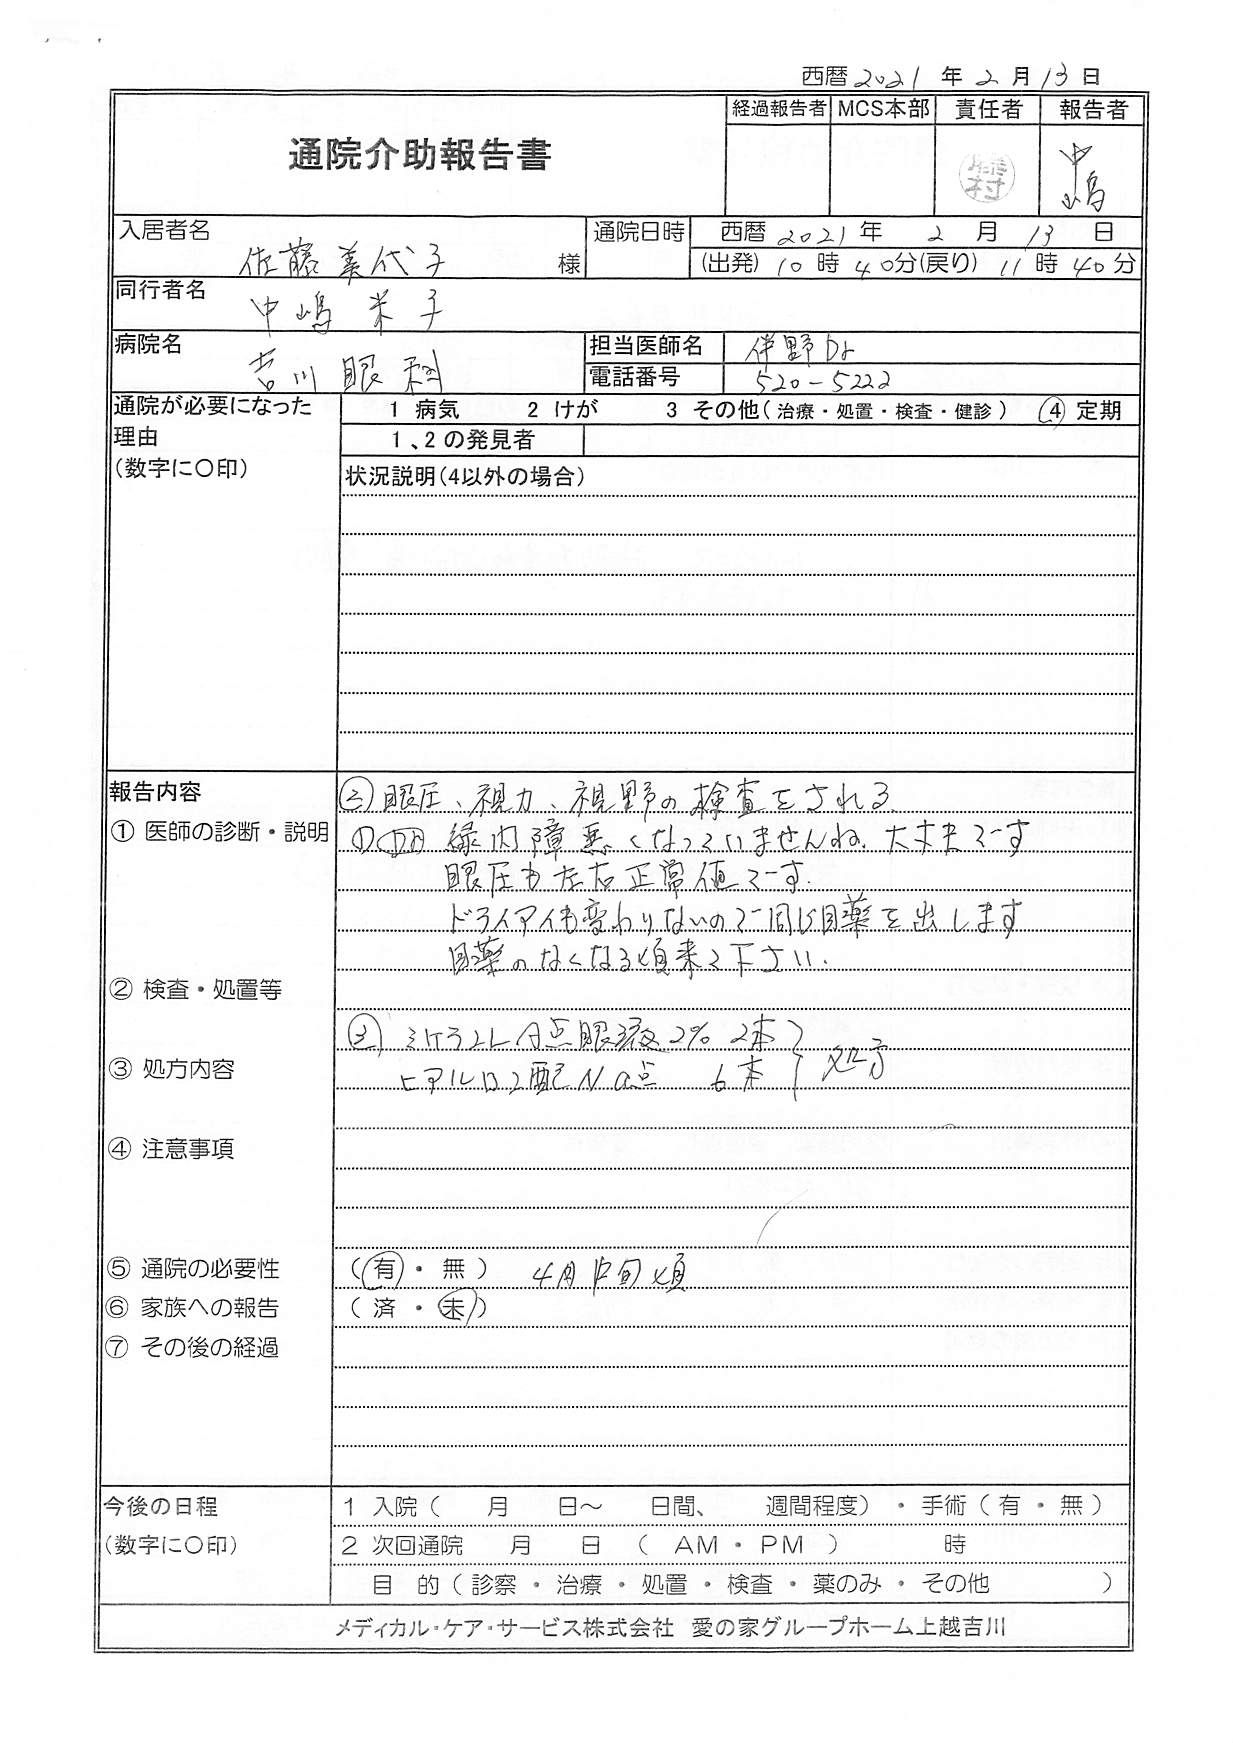 西暦 2021 年 2 月 13 日
通院介助報告書
経過報告者 MCS本部 責任者 報告者
中嶋
入居者名 佐藤美代子 様
通院日時 西暦 2021 年 2 月 13 日
(出発) 10 時 40分(戻り) 11 時 40分
同行者名 中嶋 米子
病院名 吉川眼科
担当医師名 伊野Dr
電話番号 520-5222
通院が必要になった 1 病気 2 けが 3 その他(治療・処置・検査・健診) ④ 定期
理由 1、2の発見者
(数字に〇印) 状況説明(4以外の場合)
報告内容 ②眼圧、視力、視野の検査をされる
① 医師の診断・説明 ① Dr 緑内障悪くなっていませんね。大丈夫です
眼圧も左右正常値です.
ドライアイも変わりないので同じ目薬を出します
目薬のなくなる頃来て下さい.
② 検査・処置等
③ ミケランLA点眼液2% 2本
③ 処方内容 ヒアルロン酸Na点 6本 処方
④ 注意事項
⑤ 通院の必要性 (有・無) 4月中旬頃
⑥ 家族への報告 (済・未)
⑦ その後の経過
今後の日程 1 入院( 月 日〜 日間、 週間程度)・手術(有・無)
(数字に〇印) 2 次回通院 月 日 ( AM・PM ) 時
目 的(診察・治療・処置・検査・薬のみ・その他 )
メディカル・ケア・サービス株式会社 愛の家グループホーム上越吉川